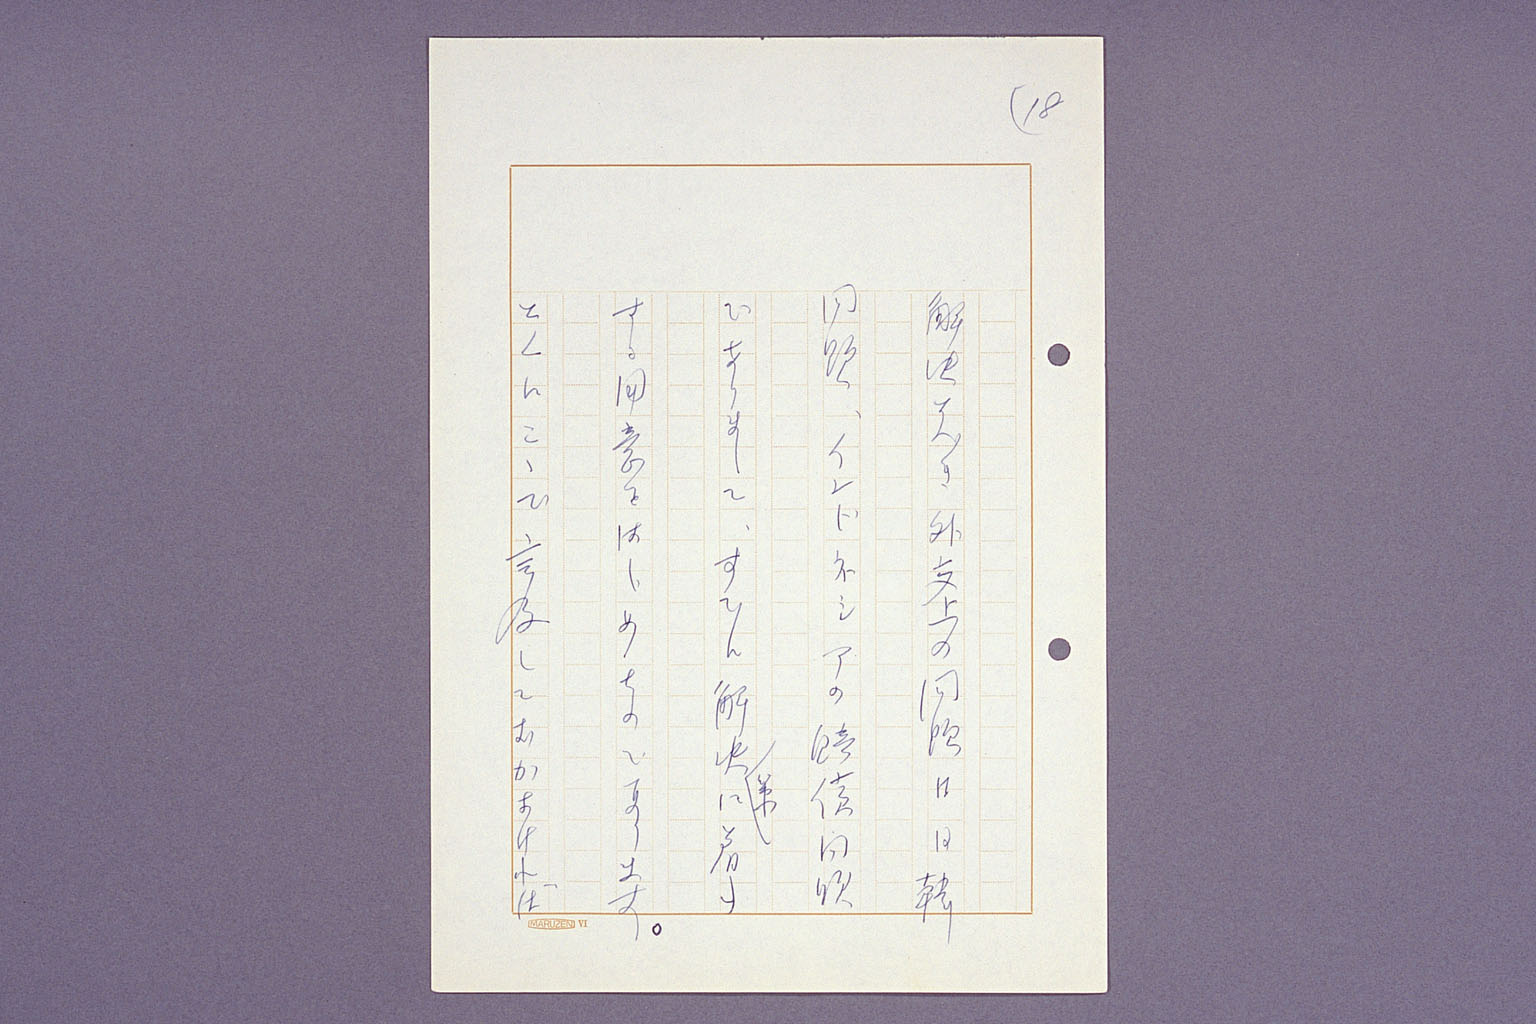 (18
解決すべき外交上の問題は日韓
問題、インドネシアの賠償問題
でありまして、すでに解決策に着手
する用意をはじめたのであります。
とくにこゝで言及しておかなければ
MARUZEN VI